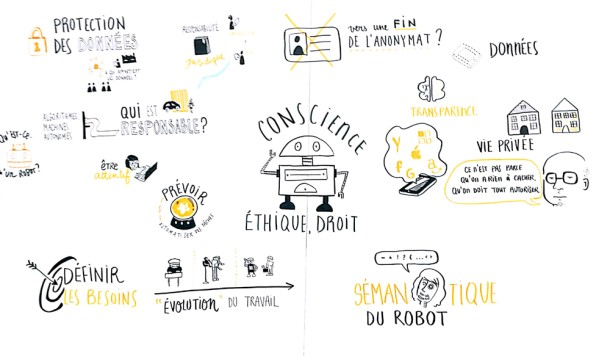 PROTECTION
DES DONNÉES
RESPONSABILITÉ
juridique
À QUI APPARTIENT
LE DONNÉES ?
VERS UNE FIN
DE L'ANONYMAT ?
DONNÉES
ALGORITHMES
MACHINES
AUTONOMES
QUI EST
RESPONSABLE ?
QU'EST-CE
'UN ROBOT?
être
attentif
PRÉVOIR
CONSCIENCE
ÉTHIQUE, DROIT
TRANSPARENCE
y
f G a
VIE PRIVÉE
CE N'EST PAS PARCE
QU'ON A RIEN À CACHER
QU'ON DOIT TOUT AUTORISER
DÉFINIR
LES BESOINS
"ÉVOLUTION" DU TRAVAIL
- * ! ? € ... -
SÉMANTIQUE
DU ROBOT